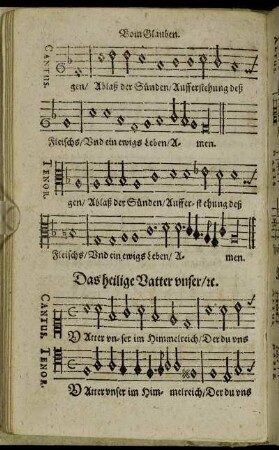 Vom Glauben.
CANTUS.
gen/ Ablaß der Sünden/ Aufferstehung deß
Fleischs/ Vnd ein ewigs Leben/ A- men.
TENOR.
gen/ Ablaß der Sünden/ Auffer- st ehung deß
Fleischs/ Vnd ein ewigs Leben/ A- men.
Das heilige Vatter vnser/ꝛc.
CANTUS.
VAtter vn- ser im Himmelreich/ Der du vns
TENOR.
VAtter vnser im Him- melreich/ Der du vns